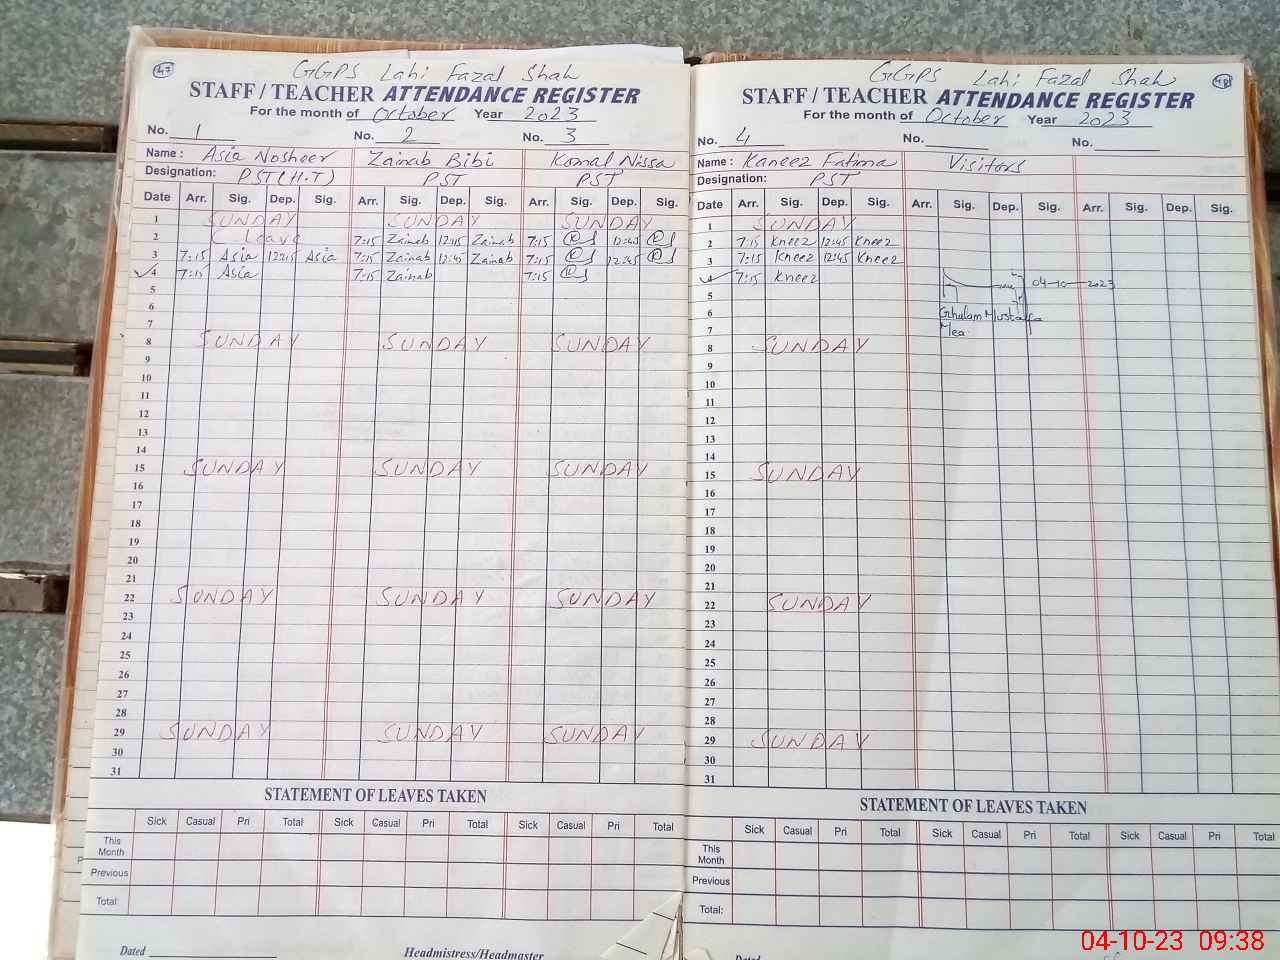 47
GGPS Lahi Fazal Shah
STAFF / TEACHER ATTENDANCE REGISTER
For the month of October Year 2023
No. 1 No. 2 No. 3
Name : Asia Nosheer Zainab Bibi Komal Nissa
Designation: PST(H.T) PST PST
Date Arr. Sig. Dep. Sig. Arr. Sig. Dep. Sig. Arr. Sig. Dep. Sig.
1 SUNDAY SUNDAY SUNDAY
2 C Leave 7:15 Zainab 12:45 Zainab 7:15 12:45
3 7:15 Asia 12:45 Asia 7:15 Zainab 12:45 Zainab 7:15 12:45
4 7:15 Asia 7:15 Zainab 7:15
5
6
7
8 SUNDAY SUNDAY SUNDAY
9
10
11
12
13
14
15 SUNDAY SUNDAY SUNDAY
16
17
18
19
20
21
22 SUNDAY SUNDAY SUNDAY
23
24
25
26
27
28
29 SUNDAY SUNDAY SUNDAY
30
31
STATEMENT OF LEAVES TAKEN
Sick Casual Pri Total Sick Casual Pri Total Sick Casual Pri Total
This Month
Previous
Total:
Dated Headmistress/Headmaster
48
GGPS Lahi Fazal Shah
STAFF / TEACHER ATTENDANCE REGISTER
For the month of October Year 2023
No. 4 No. No.
Name : Kaneez Fatima Visitors
Designation: PST
Date Arr. Sig. Dep. Sig. Arr. Sig. Dep. Sig. Arr. Sig. Dep. Sig.
1 SUNDAY
2 7:15 Kneez 12:45 Kneez
3 7:15 Kneez 12:45 Kneez
4 7:15 Kneez
5 04-10-2023
6 Ghulam Mustafa
7 Mea.
8 SUNDAY
9
10
11
12
13
14
15 SUNDAY
16
17
18
19
20
21
22 SUNDAY
23
24
25
26
27
28
29 SUNDAY
30
31
STATEMENT OF LEAVES TAKEN
Sick Casual Pri Total Sick Casual Pri Total Sick Casual Pri Total
This Month
Previous
Total:
Dated
04-10-23 09:38